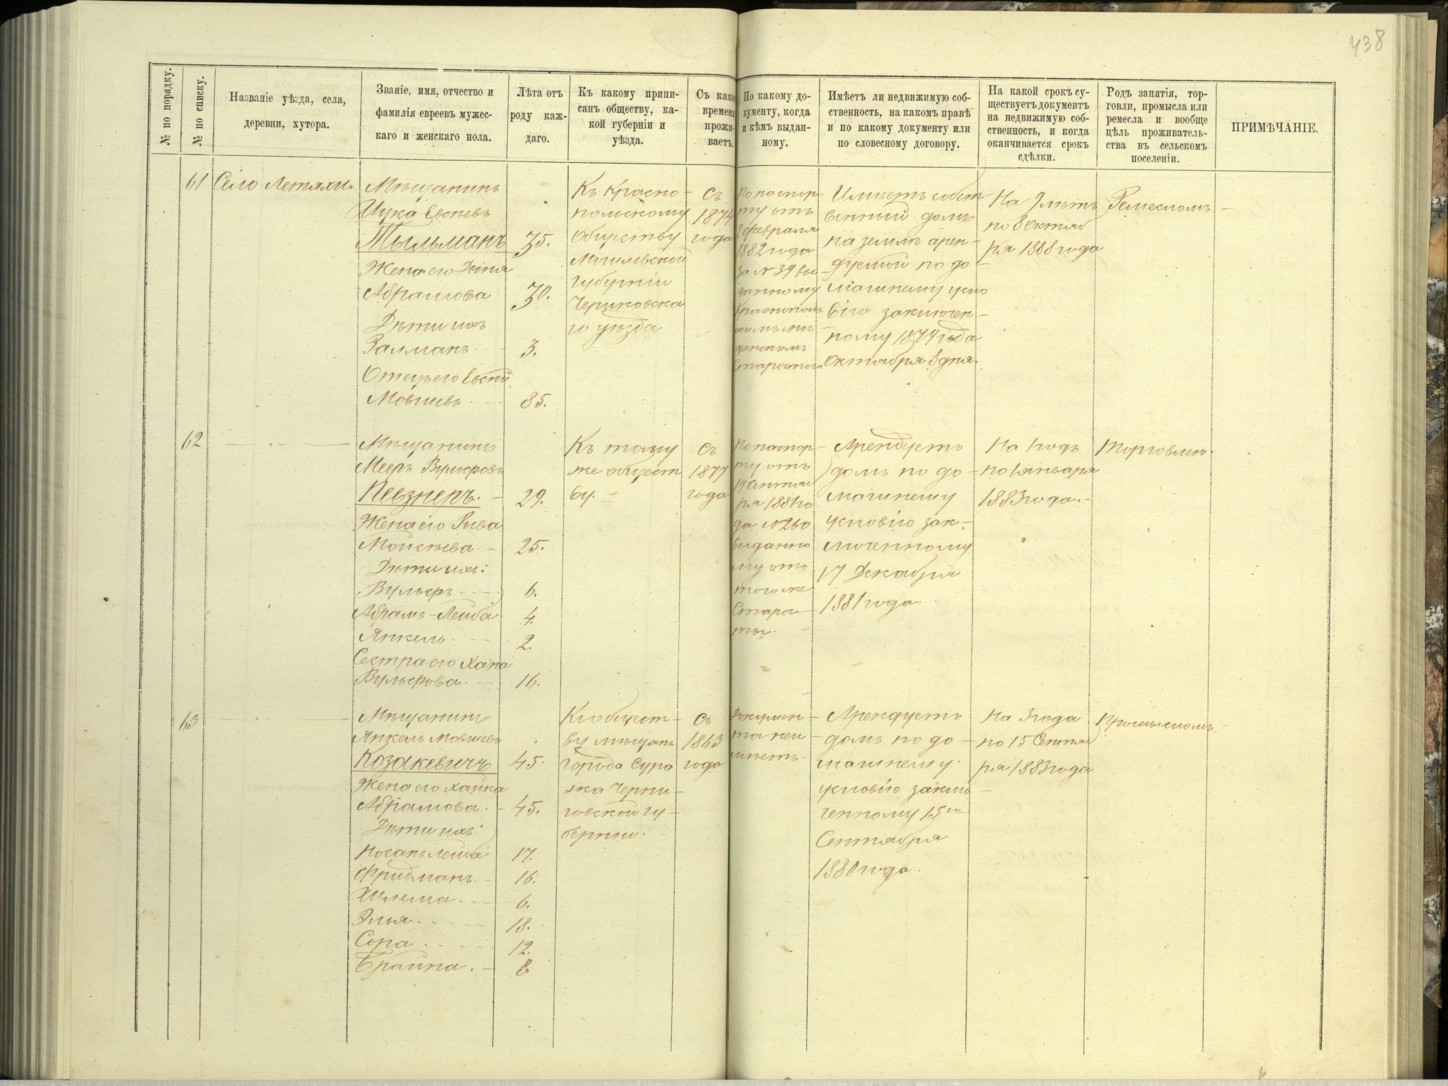 438
№ по порядку.
№ по списку.
Названіе уѣзда, села,
деревни, хутора.
Званіе, имя, отчество и
фамилія евреевъ мужес-
каго и женскаго пола.
Лѣта отъ
роду каж-
даго.
Къ какому припи-
санъ обществу, ка-
кой губерніи и
уѣзда.
Съ како
времени
прожи-
ваетъ.
По какому до-
кументу, когда
и кѣмъ выдан-
ному.
Имѣетъ ли недвижимую соб-
ственность, на какомъ правѣ
и по какому документу или
по словесному договору.
На какой срокъ су-
ществуетъ документъ
на недвижимую соб-
ственность, и когда
оканчивается срокъ
сдѣлки.
Родъ занятія, тор-
говли, промысла или
ремесла и вообще
цѣль проживатель-
ства въ сельскомъ
поселеніи.
ПРИМѢЧАНІЕ.
61
Село Летяхи
Мѣщанинъ
Тыльманъ
35.
Жена его
Абрамова
30.
Дѣти ихъ
Залманъ
3.
Отецъ его
Мовшевъ
85.
Къ Красно-
польскому
обществу
Могилевской
губерніи
Чериковска
го уѣзда
Съ
1874
года
По паспор-
ту отъ
февраля
1882 года
за № 39 вы-
данному
Имѣетъ собст
венный домъ
на землѣ арен-
дуемой по до-
машнему усло
вію заключен-
ному 1879 года
Октября 8 дня.
На 9 лѣтъ
по 8 Октяб
ря 1888 года
Ремесломъ
62
Мѣщанинъ
Мееръ
Певзнеръ.
29.
Жена его Рыва
Мойсѣева
25.
Дѣти ихъ:
Вульфъ
6.
Абрамъ-Лейба
4.
Янкель
2
Сестра его Хана
Вульфова
16.
Къ тому
же общест
ву.
Съ
1877
года
По паспор-
ту отъ
Сентяб
ря 1881 го
да № 260
выданно
му отъ
того же
Старос-
ты.
Арендуетъ
домъ по до-
машнему
условію зак-
люченному
17 Декабря
1881 года
На 1 годъ
по 1 Января
1883 года.
Торговлею.
63
Мѣщанинъ
Янкель Мовшевъ
Козакевичъ
45.
Жена его Хайка
Абрамова.
45.
Дѣти ихъ:
Носанъ Лейба
17.
Фридманъ
16.
Шлема
6.
Элья
18.
Сора
12.
Брайна.
8
Къ общест-
ву мѣщанъ
города Сура
жа Черни-
говской гу-
берніи.
Съ
1843
года
Докумен-
та неи
мѣетъ.
Арендуетъ
домъ по до-
машнему
условію заклю-
ченному 15го
Сентября
1880 года.
На 3 года
по 15 Сентяб
ря 1883 года
Промысломъ